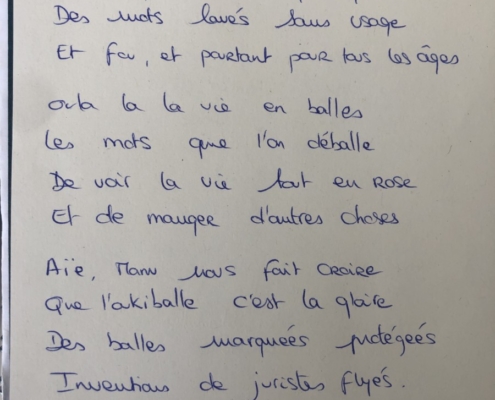 Des mots lavés sans usage
Et fou, et pourtant pour tous les âges
oula la la vie en balles
Les mots que l'on déballe
De voir la vie tout en ROSE
Et de manger d'autres choses
Aïe, Manu nous fait croire
Que l'akiballe c'est la gloire
Des balles marquées protégées
Inventions de juristes flyés.